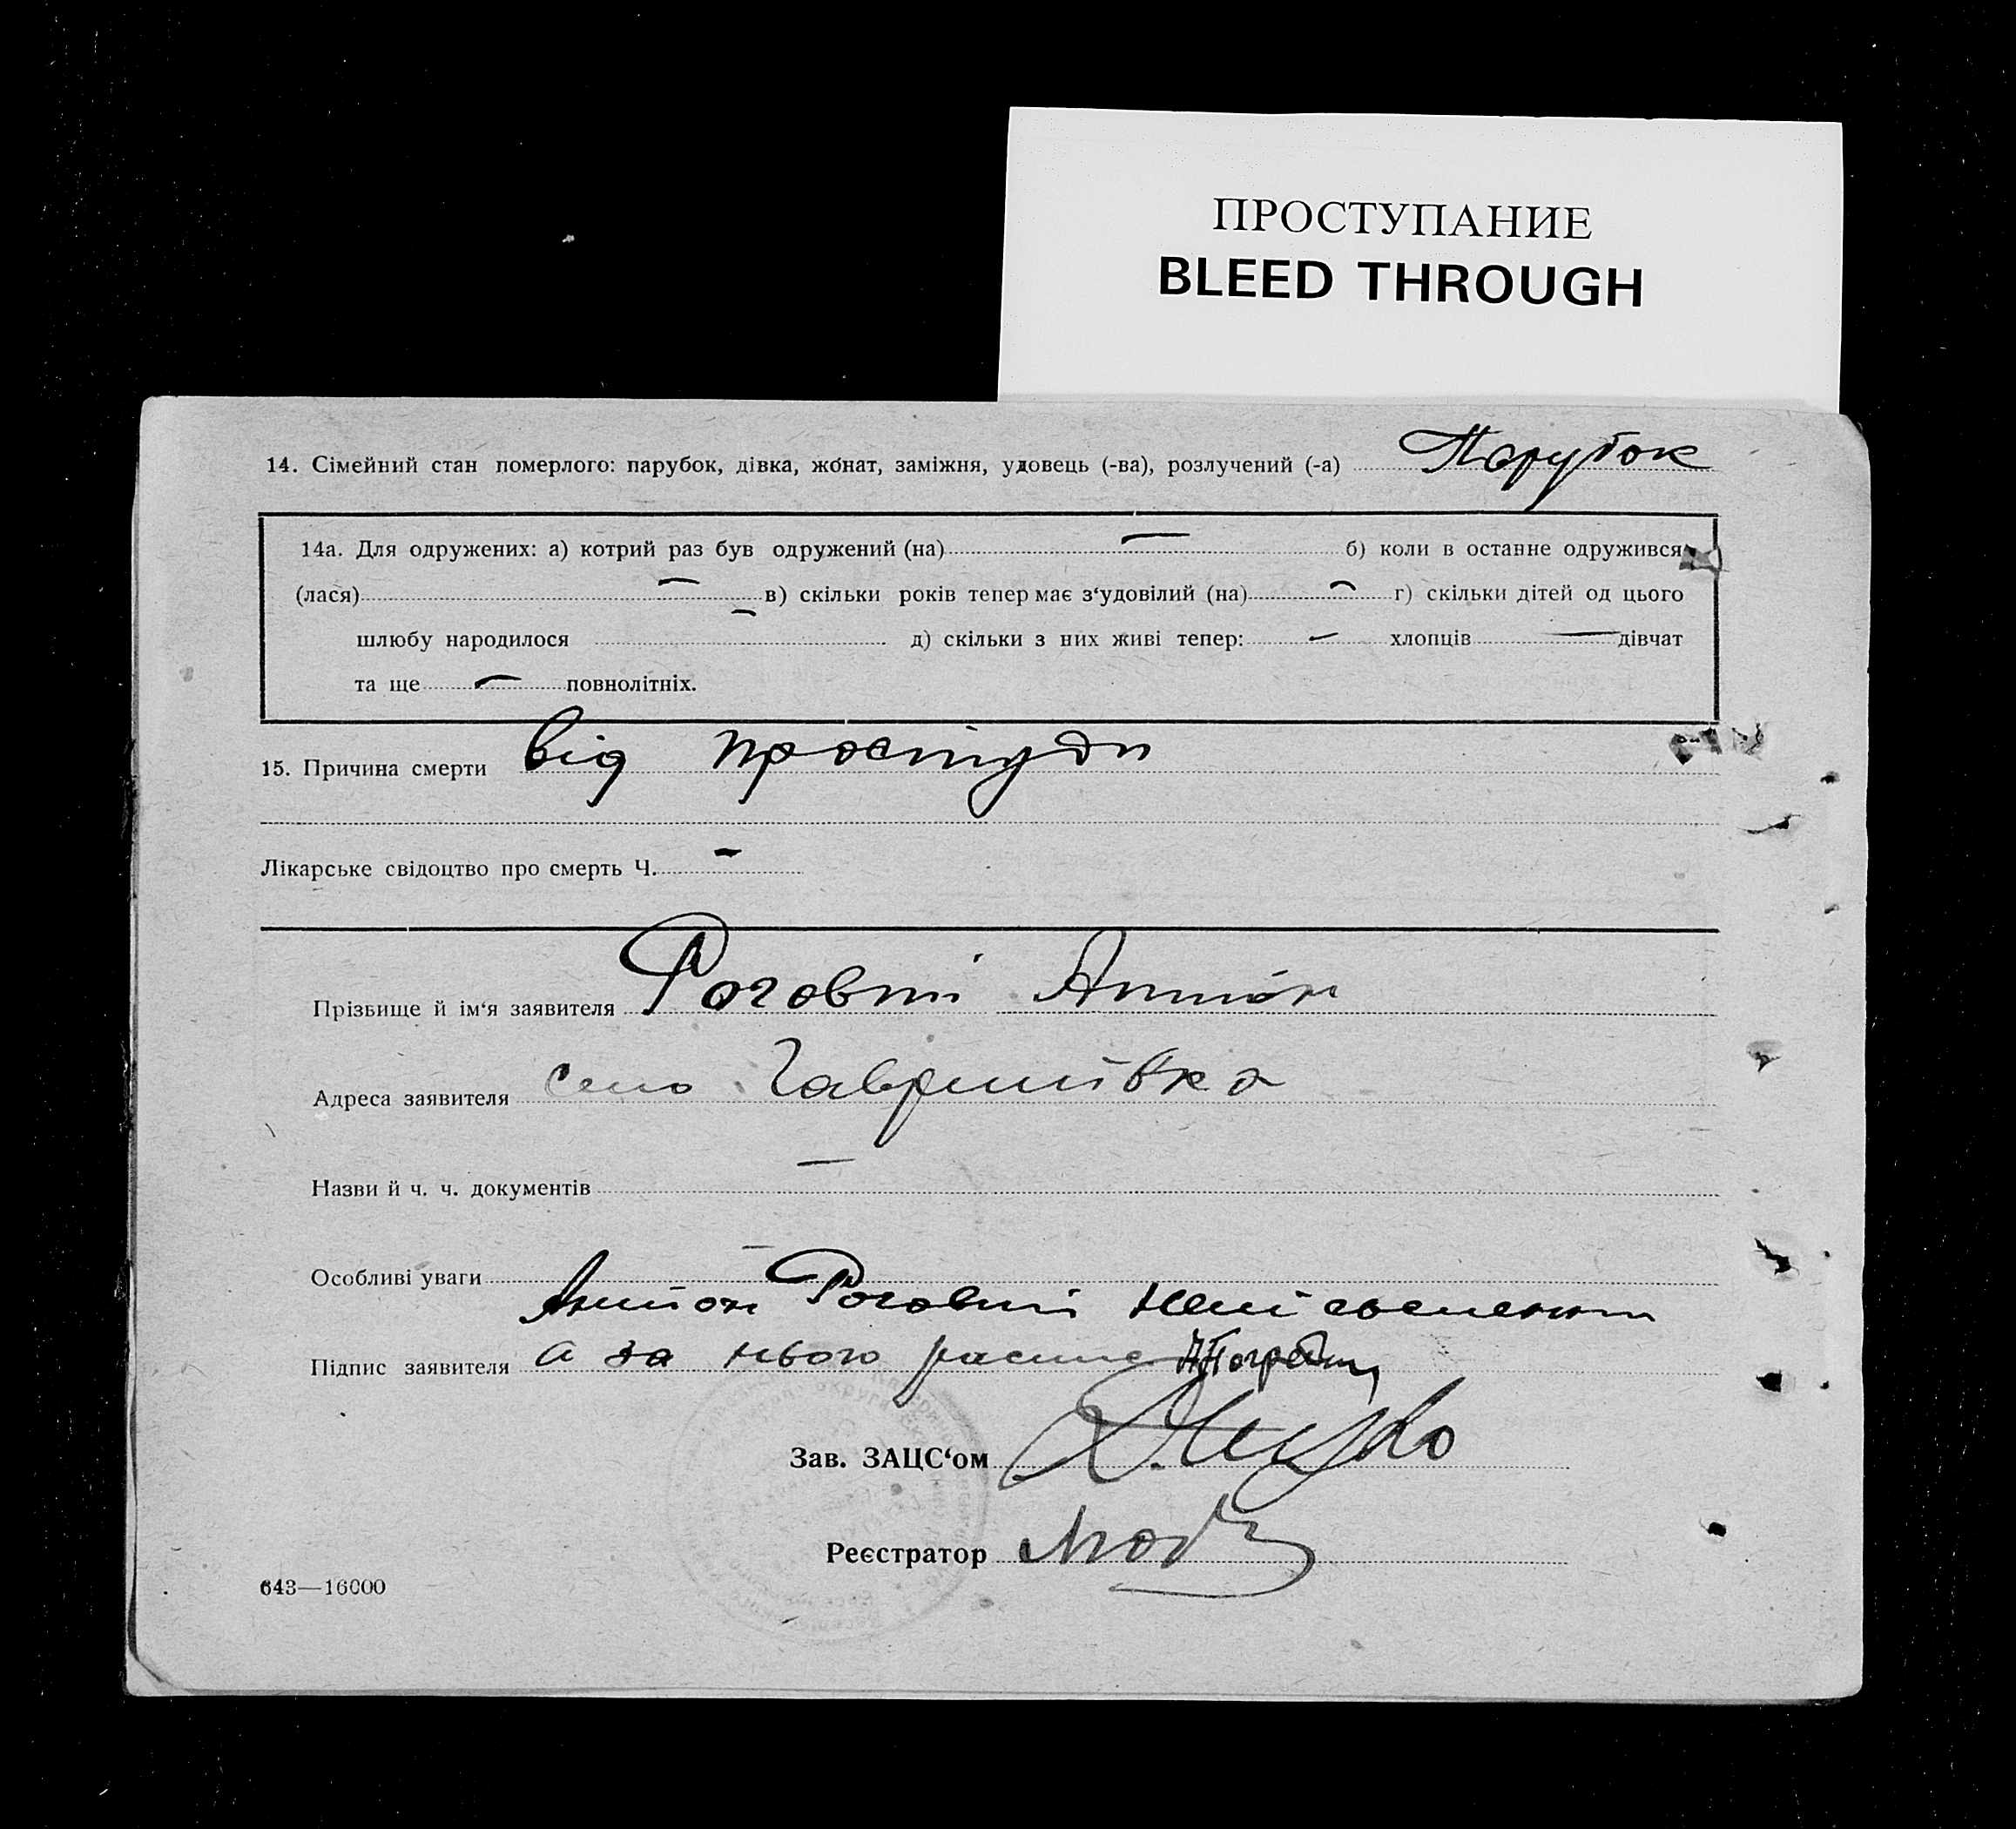 ПРОСТУПАНИЕ
BLEED THROUGH
14. Сімейний стан померлого: парубок, дівка, жонат, заміжня, удовець (-ва), розлучений (-а) Парубок
14а. Для одружених: а) котрий раз був одружений (на) — б) коли в останнє одружився
(лася) — в) скільки років тепер має з‘удовілий (на) — г) скільки дітей од цього
шлюбу народилося — д) скільки з них живі тепер: — хлопців — дівчат
та ще — повнолітніх.
15. Причина смерти від простуди
Лікарське свідоцтво про смерть Ч. —
Прізвище й ім‘я заявителя Роговий Антон
Адреса заявителя село Гавришівка
Назви й ч. ч. документів —
Особливі уваги —
Антон Роговий
Підпис заявителя а за нього
Зав. ЗАЦС‘ом
Реєстратор
643—16000